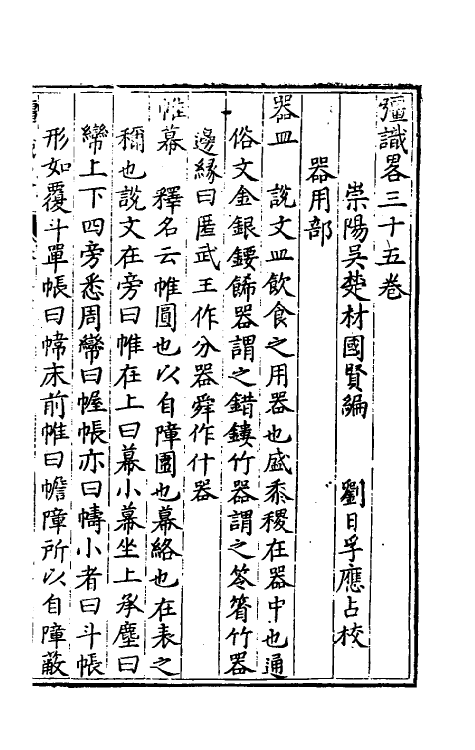 彊識畧三十五卷
崇陽吳楚材國賢編　劉日孚應占校
器用部
器皿　說文皿飲食之用器也盛黍稷在器中也通
俗文金銀鏤餙器謂之錯鏤竹器謂之笭箵竹器
邊緣曰匿武王作分器舜作什器
帷幕　釋名云帷圍也以自障圍也幕絡也在表之
稱也說文在旁曰帷在上曰幕小幕坐上承塵曰
幦上下四旁悉周幦曰幄帳亦曰幬小者曰斗帳
形如覆斗單帳曰㡘床前帷曰幨障所以自障蔽